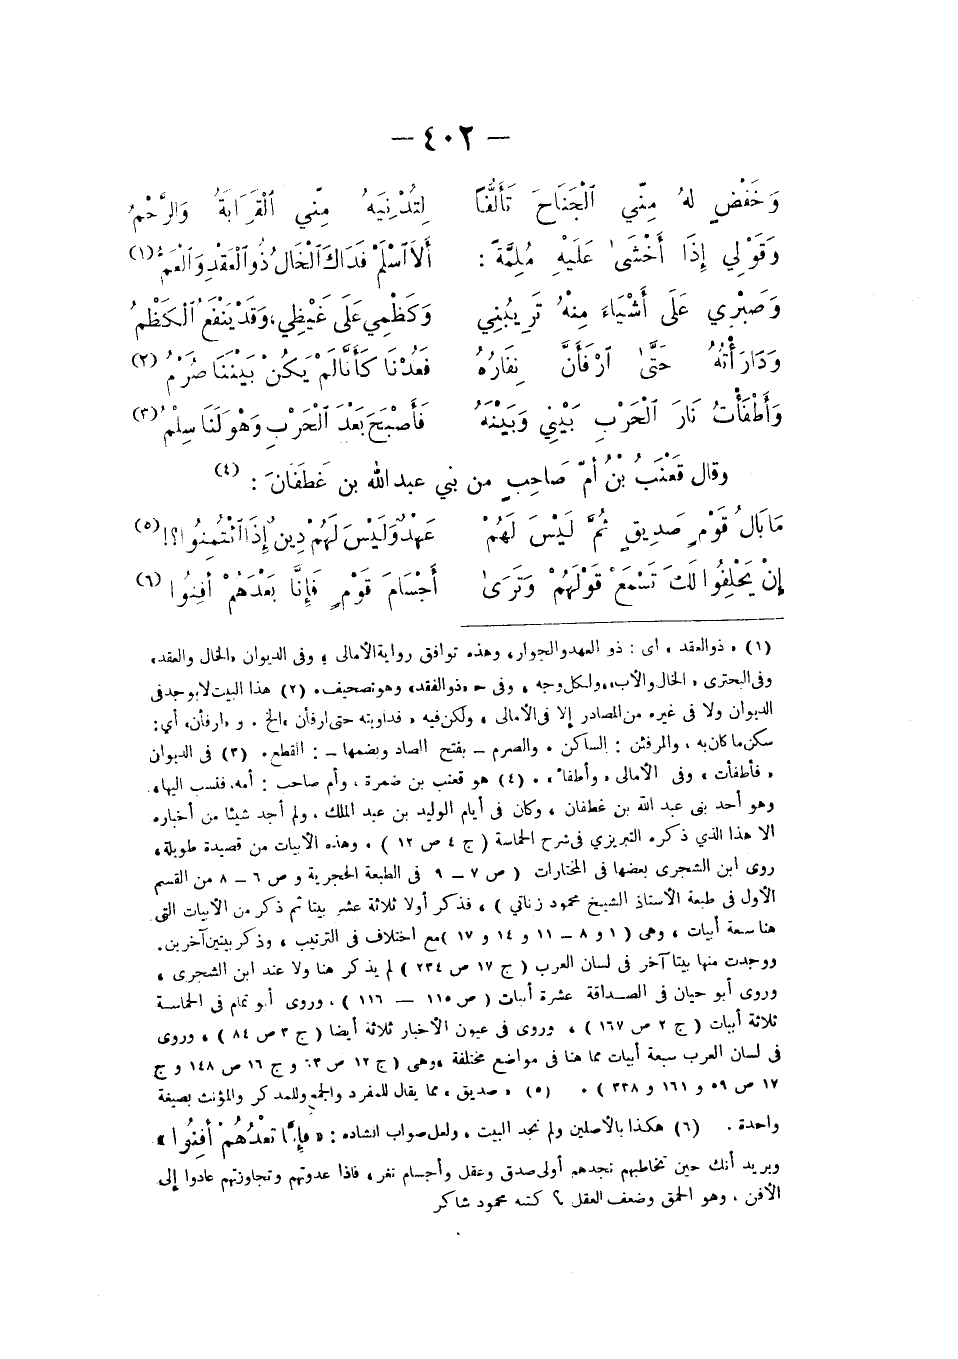 — ٤٠٢ —
وَخَفْضٍ لهُ مِنِّي ٱلْجَنَاحَ تَأَلُّفًا لِتُدْنِيَهُ مِنِّي ٱلْقَرَابَةُ وَالرَّحْمُ
وَقَوْلِي إِذَا أَخْشَىٰ عَلَيْهِ مُلِمَّةً : أَلاَ ٱسْلَمْ فَدَاكَ ٱلْخَالُ ذُو ٱلْعَقْدِ وَٱلْعَمُّ (١)
وَصَبْرِي عَلَى أَشْيَاءَ مِنْهُ تَرِيبُنِي وَكَظْمِي عَلَى غَيْظِي، وَقَدْ يَنْفَعُ ٱلْكَظْمُ
وَدَارَأْتُهُ حَتَّىٰ ٱرْفَأَنَّ نِفَارُهُ فَعُدْنَا كَأَنَّا لَمْ يَكُنْ بَيْنَنَا صُرْمُ (٢)
وَأَطْفَأْتُ نَارَ ٱلْحَرْبِ بَيْنِي وَبَيْنَهُ فَأَصْبَحَ بَعْدَ ٱلْحَرْبِ وَهُوَ لَنَا سِلْمُ (٣)
وقال قَعْنَبُ بْنُ أُمِّ صَاحِبٍ من بني عبد الله بن غَطَفَانَ : (٤)
مَا بَالُ قَوْمٍ صَدِيقٍ ثُمَّ لَيْسَ لَهُمْ عَهْدٌ وَلَيْسَ لَهُمْ دِينٌ إِذَا ٱئْتُمِنُوا؟! (٥)
إِنْ يَحْلِفُوا لَكَ تَسْمَعْ قَوْلَهُمْ وَتَرَىٰ أَجْسَامَ قَوْمٍ فَإِنَّا بَعْدَهُمْ أفِنُوا (٦)
(١) « ذو العقد » اى : ذو العهد والجوار، وهذه توافق رواية الأمالى ؛ وفى الديوان «الخال والعقد»
وفى البحترى « الخال والأب»، ولكل وجه ، وفى ـ «ذو الفقد» وهو تصحيف . (٢) هذا البيت لا يوجد فى
الديوان ولا فى غيره من المصادر إلا فى الأمالى ، ولكن فيه « فداويته حتى ارفأن » الخ . و «ارفأن» أي:
سكن ما كان به ، والمرفئن : الساكن . والصرم ــ بفتح الصاد وبضمها ــ : القطع . (٣) فى الديوان
« فأطفأت » وفى الأمالى « وأطفا » . (٤) هو قعنب بن ضمرة ، وأم صاحب : أمه. فنسب اليها،
وهو أحد بنى عبد الله بن غطفان ، وكان فى أيام الوليد بن عبد الملك . ولم أجد شيئا من أخباره
الا هذا الذي ذكره التبريزي فى شرح الحماسة ( ج ٤ ص ١٢ ) . وهذه الأبيات من قصيدة طويلة،
روى ابن الشجرى بعضها فى المختارات ( ص ٧ ــ ٩ فى الطبعة الحجرية و ص ٦ ــ ٨ من القسم
الأول فى طبعة الأستاذ الشيخ محمود زناتي ) ، فذكر أولا ثلاثة عشر بيتا ثم ذكر من الأبيات التى
هنا سعة أبيات ، وهى ( ١ و ٨ ــ ١١ و ١٤ و ١٧ )مع اختلاف فى الترتيب ، وذكر بيتين آخرين.
ووجدت منها بيتا آخر فى لسان العرب ( ج ١٧ ص ٢٣٤ ) لم يذكر هنا ولا عند ابن الشجرى ،
وروى أبو حيان فى الصداقة عشرة أبيات ( ص ١١٥ ــ ١١٦ ) . وروى أبو تمام فى الحماسة
ثلاثة أبيات ( ج ٢ ص ١٦٧ ) ، وروى فى عيون الأخبار ثلاثة أيضا ( ج ٣ ص ٨٤ ) ، وروى
فى لسان العرب سبعة أبيات مما هنا فى مواضع مختلفة ،وهى ( ج ١٢ ص ٦٣ و ج ١٦ ص ١٤٨ و ج
١٧ ص ٥٩ و ١٦١ و ٣٣٨ ) . (٥) « صديق » مما يقال للمفرد والجمع وللمذكر والمؤنث بصيغة
واحدة . (٦) هكذا بالأصلين ولم نجد البيت ، ولعل صواب انشاده : « فإِمَّا تعْدُهُمْ أفِنُوا »
ويريد أنك حين تخاطبهم تجدهم أولى صدق وعقل وأجسام تغر ، فاذا عدوتهم وتجاوزتهم عادوا إلى
الأفن ، وهو الحمق وضعف العقل ؟ كتبه محمود شاكر